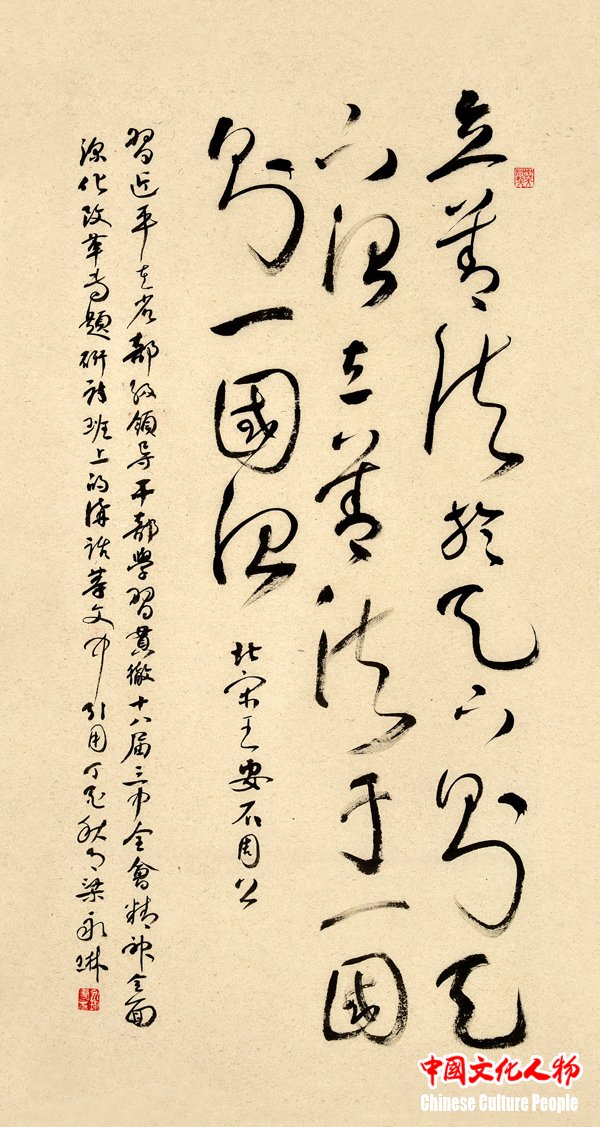 立善法於天下則天
下治立善法于一國
則一國治
北宋王安石周公
習近平在省部級領导干部學習貫徹十八届三中全會精神全面
深化改革专題研討班上的講話等文中引用丁酉秋月梁永琳
中國文化人物
Chinese Culture People